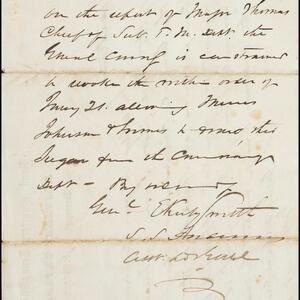 on the report of Major Thomas
Chief of Sub. T. M. Dept. the
General Comdg is constrained
to revoke the within order of
May 21. allowing Messrs
Johnson & to the
from the
Dept — By order
Genl. E Kirby Smith
S. S. Anderson
Asst Adj Genl